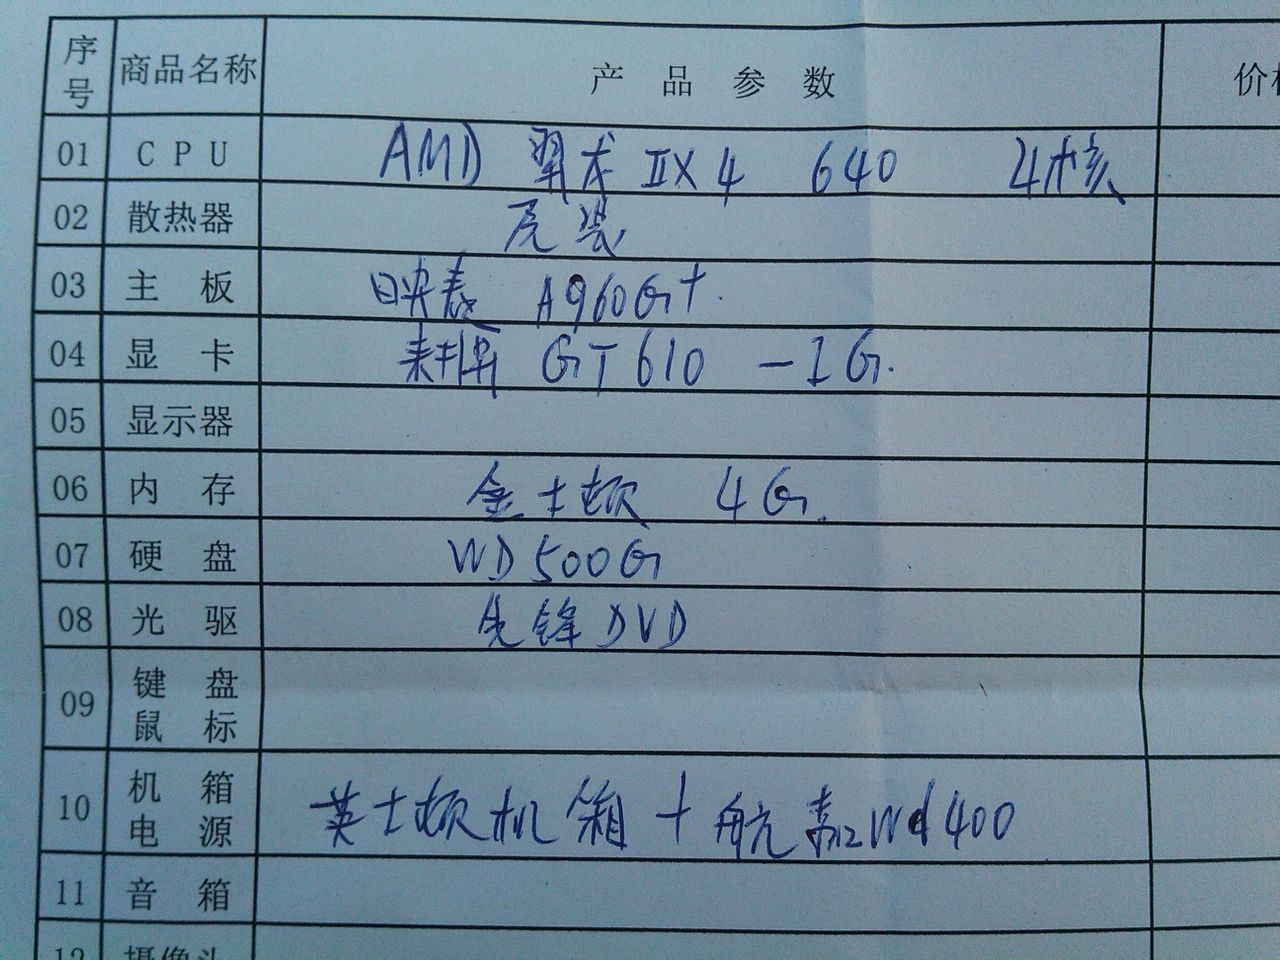 序号 商品名称 产品参数 价
01 CPU AMD 羿龙 IIX4 640 4核
02 散热器 原装
03 主板 映泰 A960G+
04 显卡 GT610 -1G.
05 显示器
06 内存 金士顿 4G.
07 硬盘 WD500G
08 光驱 先锋DVD
09 键盘鼠标
10 机箱电源 英士顿机箱+航嘉Wd400
11 音箱
12 摄像头